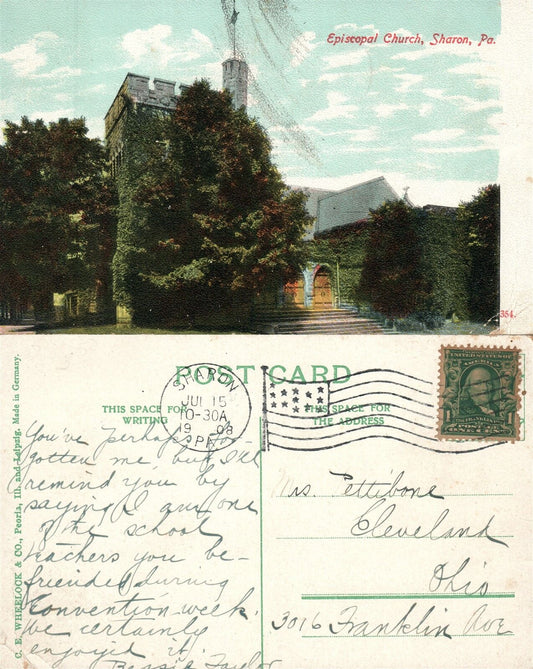 Episcopal Church, Sharon, Pa.
354.
POST CARD
THIS SPACE FOR
WRITING
THIS SPACE FOR
THE ADDRESS
SHARON
JUL 15
10-30A
19 08
PA.
C. E. WHEELOCK & CO., Peoria, Ill. and Leipzig. Made in Germany.
You've perhaps for-
gotten me, but I'll
remind you by
saying I am one
of the school
teachers you be-
friended during
Convention week.
We certainly
enjoyed it.
Bessie Taylor
Mrs. Pettibone
Cleveland
Ohio
3016 Franklin Ave